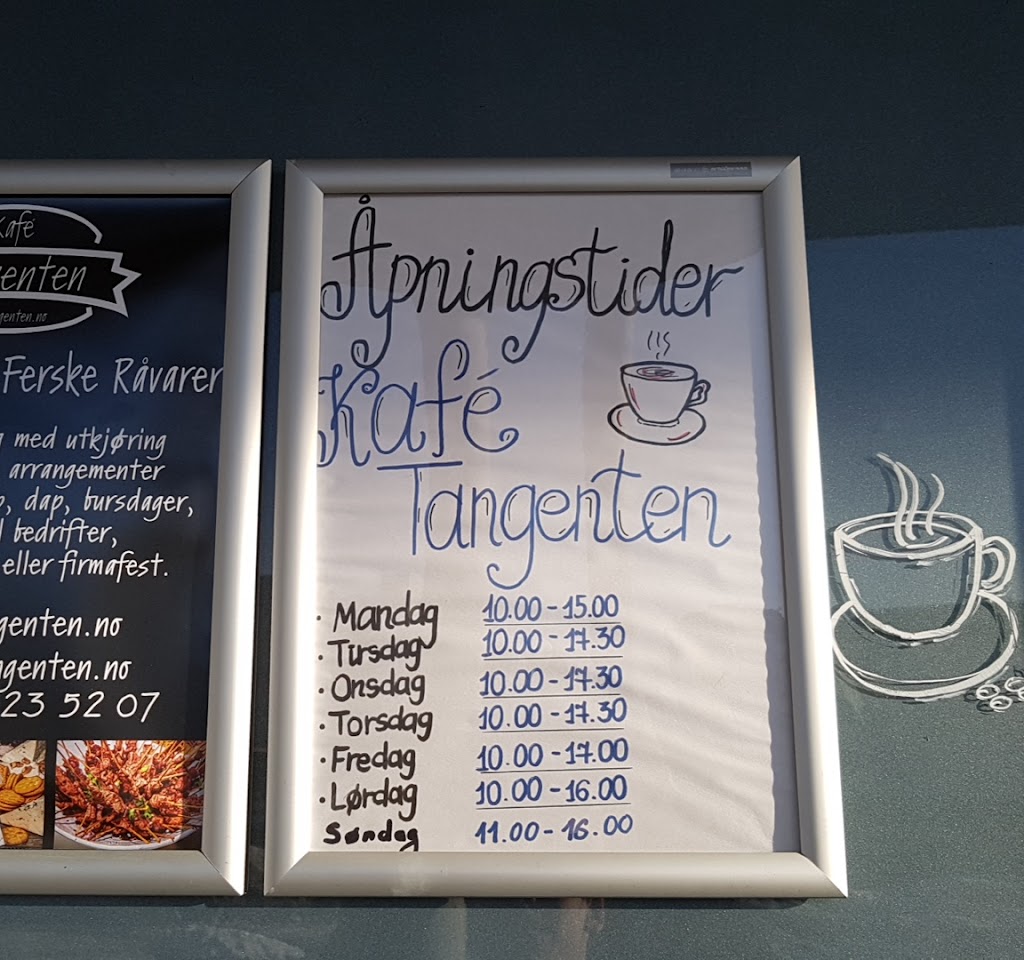 Kafé
enten
genten.no
Ferske Råvarer
med utkjøring
arrangementer
, dap, bursdager,
bedrifter,
eller firmafest.
genten.no
ngenten.no
23 52 07
Åpningstider
Kafé
Tangenten
· Mandag 10.00 - 15.00
· Tirsdag 10.00 - 17.30
· Onsdag 10.00 - 17.30
· Torsdag 10.00 - 17.30
· Fredag 10.00 - 17.00
· Lørdag 10.00 - 16.00
Søndag 11.00 - 16.00